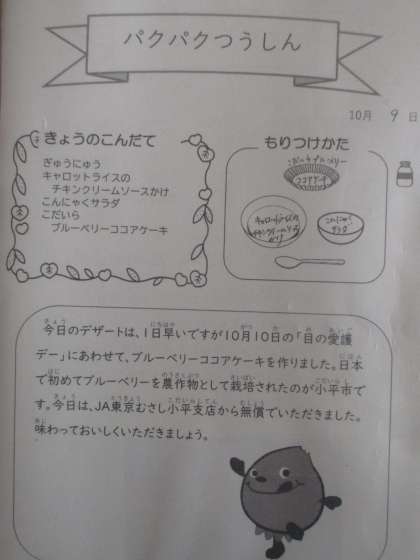 パクパクつうしん
10月 9 日
きょうのこんだて
ぎゅうにゅう
キャロットライスの
チキンクリームソースかけ
こんにゃくサラダ
こだいら
ブルーベリーココアケーキ
もりつけかた
こだいらブルーベリー
ココアケーキ
キャロットライスの
チキンクリームソース
かけ
こんにゃく
サラダ
今日のデザートは、1日早いですが10月10日の「目の愛護
デー」にあわせて、ブルーベリーココアケーキを作りました。日本
で初めてブルーベリーを農作物として栽培されたのが小平市で
す。今日は、JA東京むさし小平支店から無償でいただきました。
味わっておいしくいただきましょう。